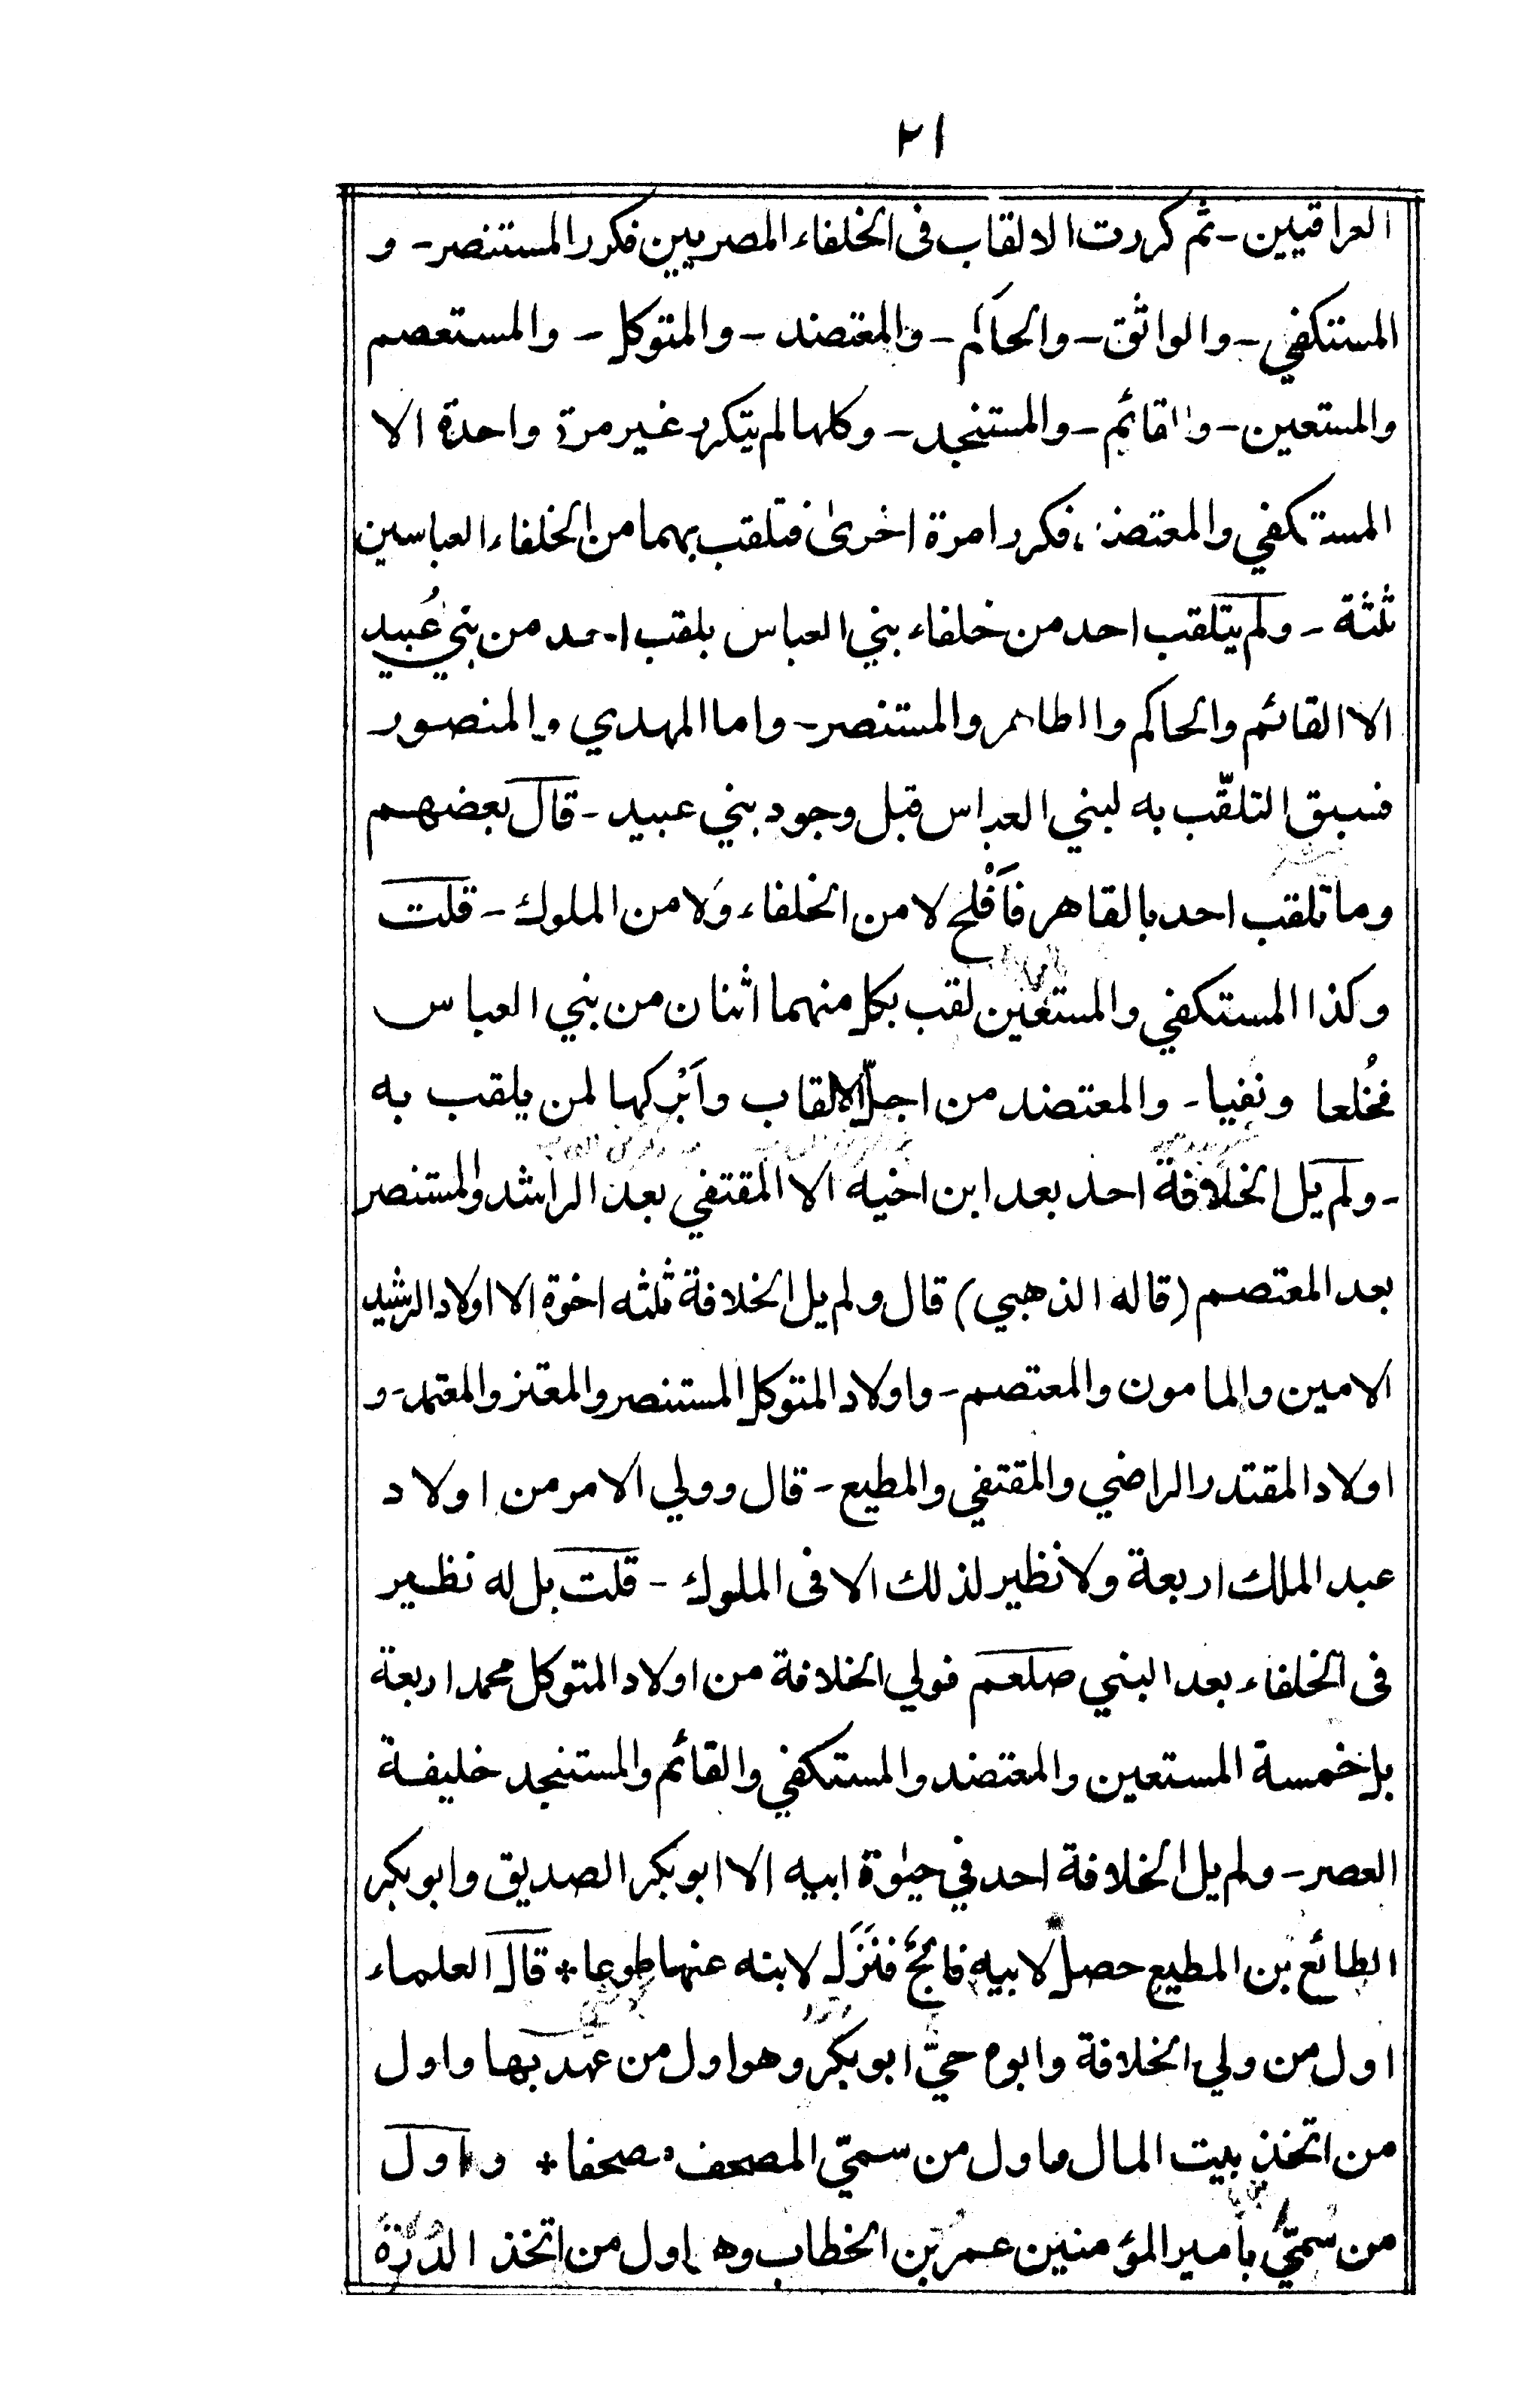 ٢١
العراقيين - ثم كررت الالقاب فى الخلفاء المصريين فكرر المستنصر - و
المستكفي - والواثق - والحاكم - والمعتضد - والمتوكل - والمستعصم
والمستعين - والقائم - والمستنجد - وكلها لم يتكرر غير مرة واحدة الا
المستكفي والمعتضد، فكررا مرة اخرى فتلقب بهما من الخلفاء العباسين
ثلثة - ولم يتلقب احد من خلفاء بني العباس بلقب احد من بني عُبيد
الا القائم والحاكم والطاهر والمستنصر - واما المهدي والمنصور
فسبق التلقّب به لبني العباس قبل وجود بني عبيد - قال بعضهم
وما تلقب احد بالقاهر فَاَفْلح لا من الخلفاء وَلا من الملوك - قلت
وكذا المستكفي والمستعين لقب بكل منهما اثنان من بني العباس
فخُلعا ونفيا - والمعتضد من اجلّ الالقاب واَبْركها لمن يلقب به
- ولم يل الخلافة احد بعد ابن اخيه الا المقتفي بعد الراشد والمستنصر
بعد المعتصم (قاله الذهبي) قال ولم يل الخلافة ثلثه اخوة الا اولاد الرشيد
الامين والمامون والمعتصم - واولاد المتوكل المستنصر والمعتز والمعتمد - و
اولاد المقتدر الراضي والمقتفي والمطيع - قال وولي الامر من اولاد
عبد الملك اربعة ولا نظير لذلك الا فى الملوك - قلت بل له نظير
فى الخلفاء بعد النبي صلعم فولي الخلافة من اولاد المتوكل محمد اربعة
بل خمسة المستعين والمعتضد والمستكفي والقائم والمستنجد خليفة
العصر - ولم يل الخلافة احد في حيٰوة ابيه الا ابو بكر الصديق وابو بكر
الطائع بن المطيع حصل لابيه فالجٌ فنَزَل لابنه عنها طوعا * قال العلماء
اول من ولي الخلافة وابوه حيّ ابو بكر وهو اول من عهد بها واول
من اتخذ بيت المال واول من سمّي المصحف مصحفا * واول
من سُمّي بامير المؤمنين عمر بن الخطاب وهو اول من اتخذ الدُرّة